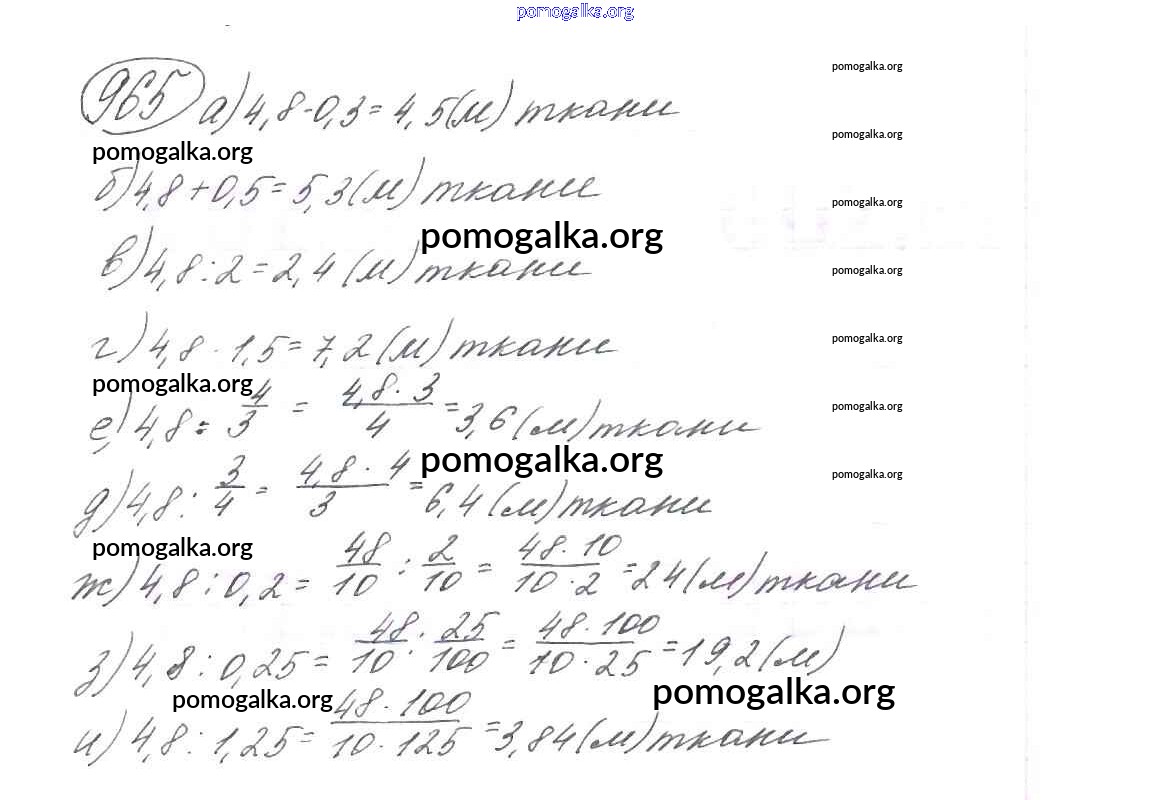 pomogalka.org
pomogalka.org
965 а) 4,8 - 0,3 = 4,5 (м) ткани
pomogalka.org
pomogalka.org
б) 4,8 + 0,5 = 5,3 (м) ткани
pomogalka.org
pomogalka.org
в) 4,8 : 2 = 2,4 (м) ткани
pomogalka.org
г) 4,8 · 1,5 = 7,2 (м) ткани
pomogalka.org
pomogalka.org
е) 4,8 : 4/3 = 4,8 · 3/4 = 3,6 (м) ткани
pomogalka.org
pomogalka.org
д) 4,8 : 3/4 = 4,8 · 4/3 = 6,4 (м) ткани
pomogalka.org
pomogalka.org
ж) 4,8 : 0,2 = 48/10 : 2/10 = 48 · 10/10 · 2 = 24 (м) ткани
з) 4,8 : 0,25 = 48/10 : 25/100 = 48 · 100/10 · 25 = 19,2 (м)
pomogalka.org
pomogalka.org
и) 4,8 : 1,25 = 48 · 100/10 · 125 = 3,84 (м) ткани